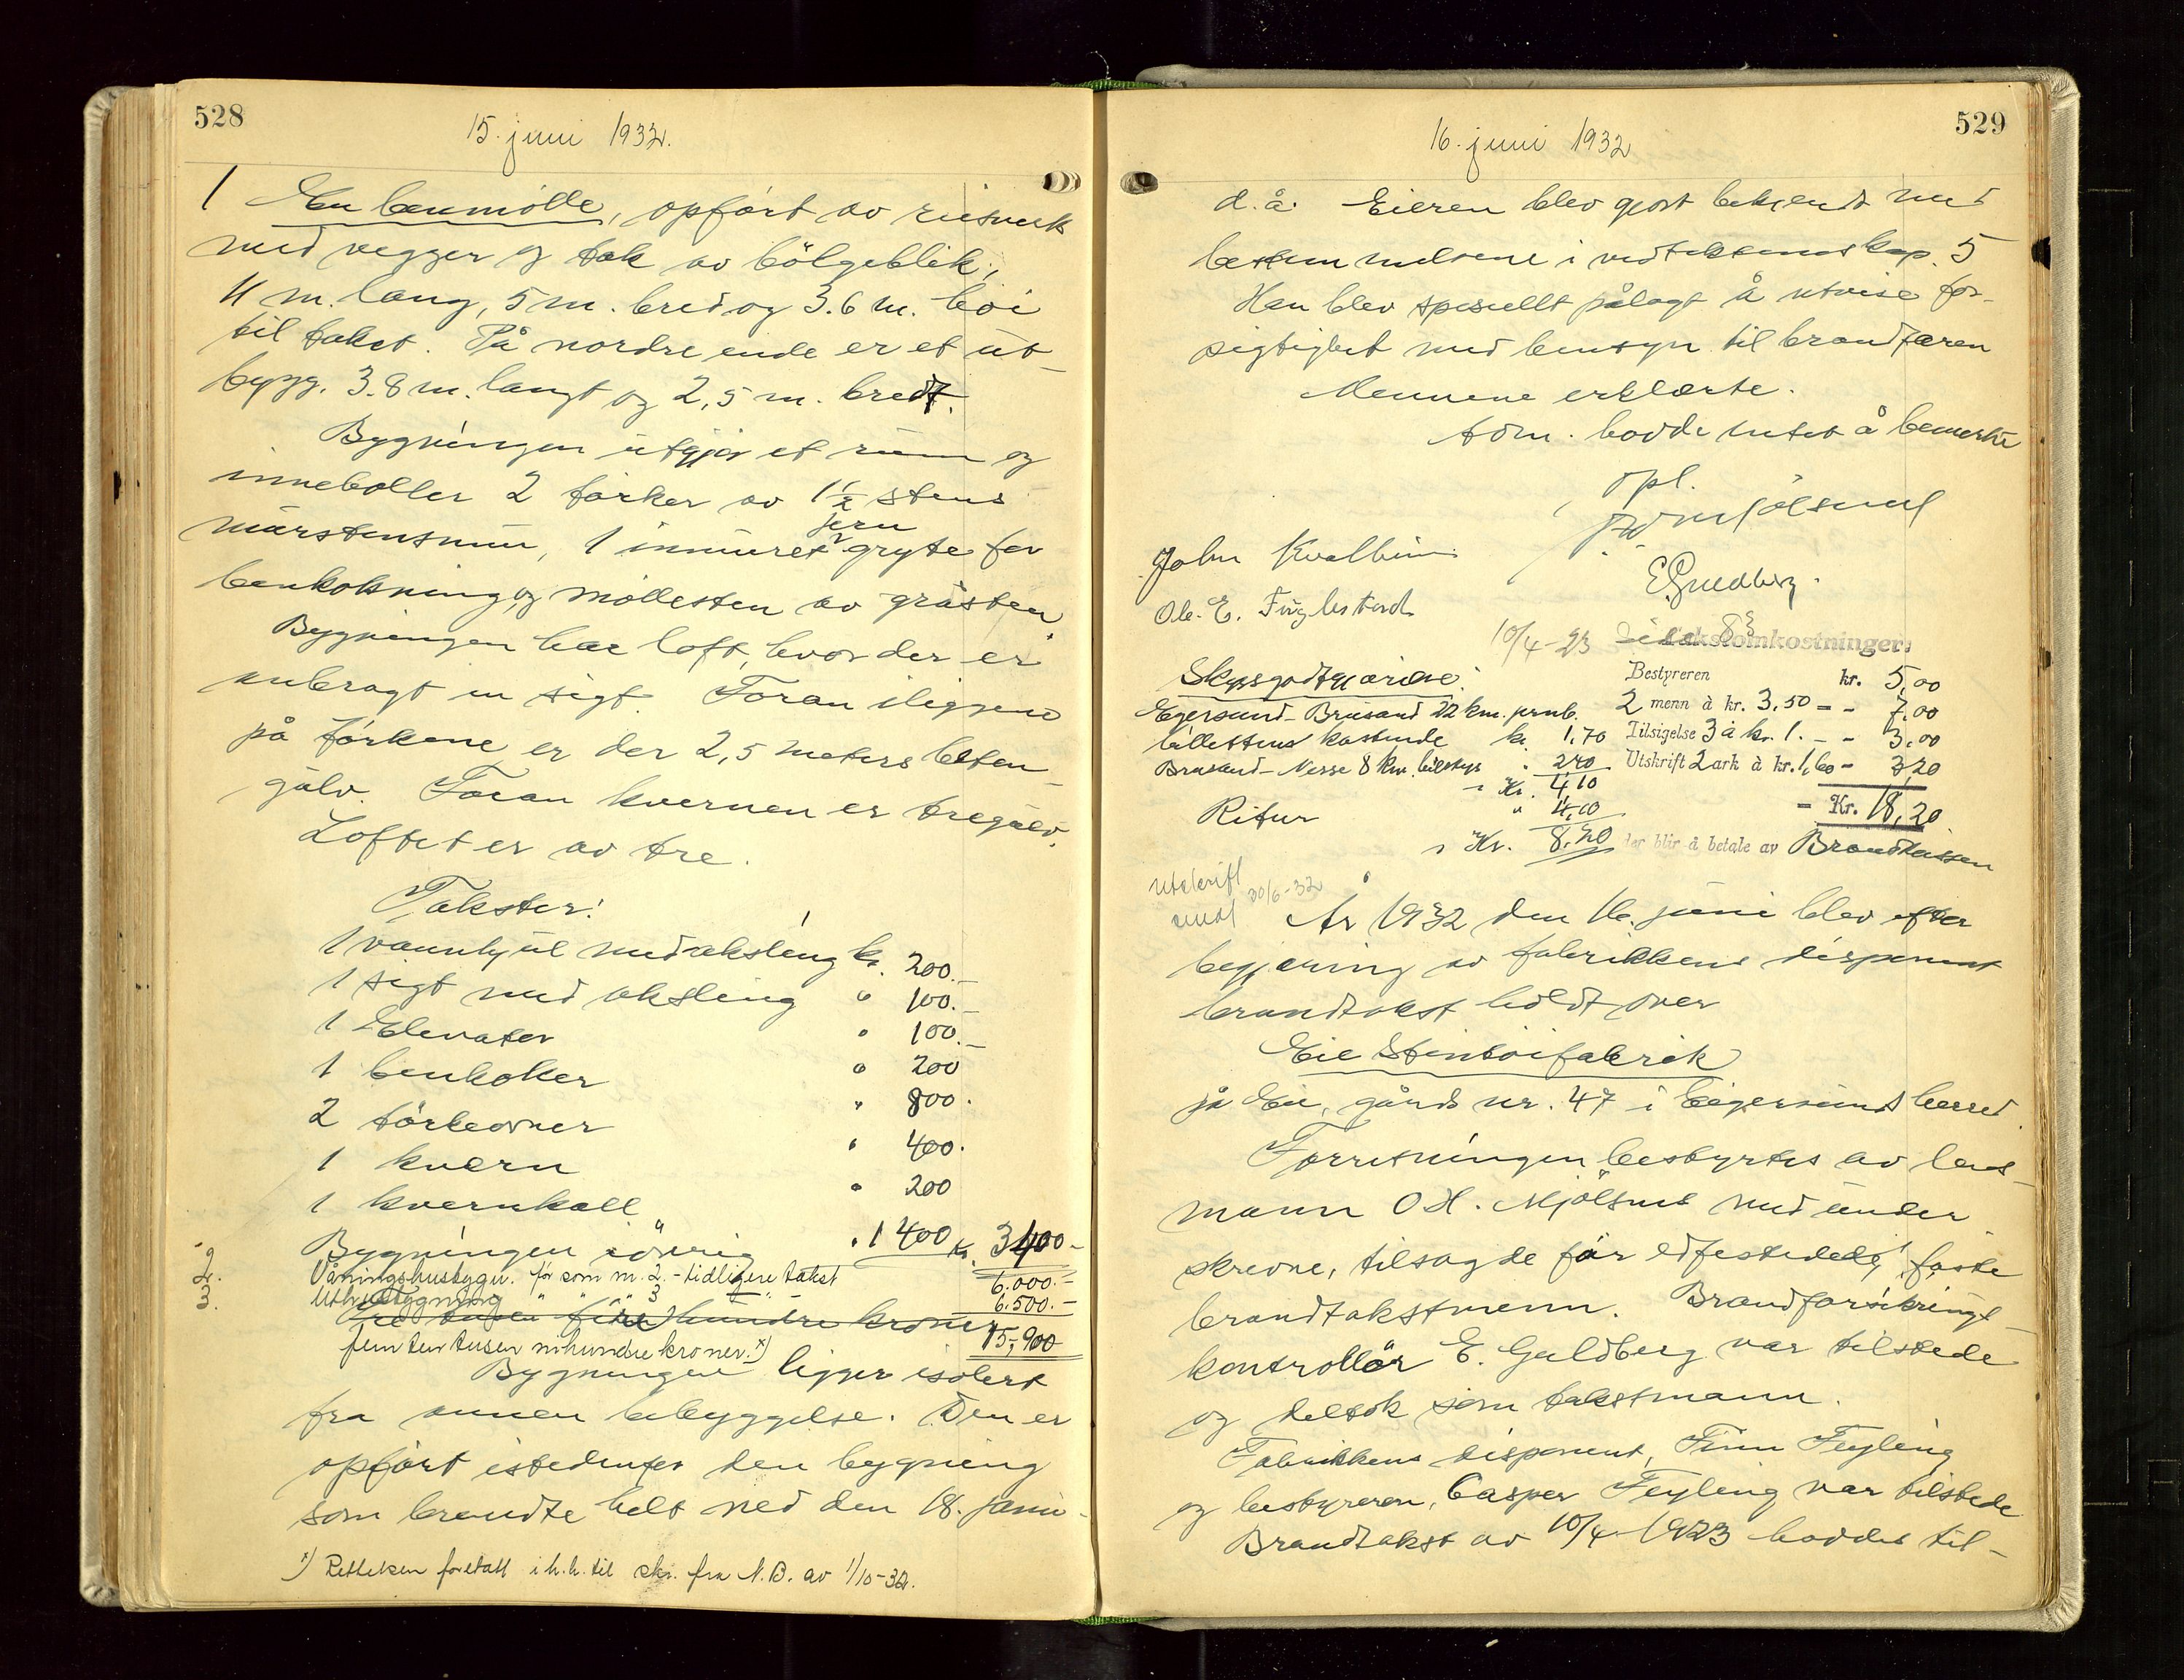 528
15. juni 1932.
1 En benmølle, opført av
med vegger og tak av bølgeblik,
11 m. lang, 5 m. bred og 3.6 m. høi
til taket. På nordre ende er et ut-
bygg. 3.8 m. langt og 2,5 m. bredt.
Bygningen utgjør et rum og
inneholder 2 tørker av 1½ stens
murstensmur, 1 innmuret jern gryte for
benkokning og møllesten av gråsten
Bygningen har loft, hvor der er
anbragt en sigt. Foran ilegene
på tørkene er der 2,5 meters beton-
gulv. Foran kvernen er tregulv.
Loftet er av tre.
Takster:
1 vannhjul med aksling kr. 200.-
1 sigt med aksling " 100.-
1 Elevator " 100.-
1 benkoker " 200
2 tørkeovner " 800.
1 kvern " 400.
1 kvernkall " 200
Bygningen iøvrig " 1400 Kr. 3400-
2. Våningshusbygn. før som nr. 2. - tidligere takst 6.000.-
3. Uthusbygning " " " 3 " " 6.500.-
Tre tusen fire hundre kroner 15,900
femten tusen nihundre kroner. x)
Bygningen ligger isolert
fra annen bebyggelse. Den er
opført istedenfor den bygning
som brendte helt ned den 18. janu-
x) Rettelsen foretatt i h.h. til skr. fra N.B. av 1/10-32.
529
16. juni 1932
d.å. Eieren blev gjort bekjendt med
bestemmelsene i vedtektenes kap. 5
Han blev spesielt pålagt å utvise for-
sigtighet med bensyn til brandfaren
Mennene erklærte.
hadde intet å bemerke
Opl.
Mjølsnes
John Kvalheim
E. Guldberg.
Ole. E. Fuglestad
10/4-23
Takstomkostninger:
Skyssgodtgjørelse:
Bestyreren kr. 5,00
Egersund - Brusand 22 km. jernb.
2 menn à kr. 3,50 = - 7,00
billettens kostende kr. 1,70
Tilsigelse 3 à kr. 1. - - 3,00
Brusand - Nesse 8 km. bilskys " 240
Utskrift 2 ark à kr. 1,60 - 3,20
Kr. 4,10
Retur " 4,10
- Kr. 18,20
Kr. 8,20
der blir å betale av Brandkassen
Utskrift
sendt 30/6-32
År 1932 den 16. juni blev efter
begjæring av fabrikkens disponent
brandtakst holdt over
Eie Stentøifabrik
på Eie, gårds nr. 47 i Eigersunds herred.
Forretningen bestyrtes av lens-
mann O.H. Mjølsnes med under-
skrevne, tilsagde før edfestede, faste
brandtakstmenn. Brandforsikrings-
kontrollør E. Guldberg var tilstede
og deltok som takstmann.
Fabrikkens disponent, Finn Feyling
og bestyreren, Casper Feyling var tilstede
Brandtakst av 10/4 1923 haddes til-